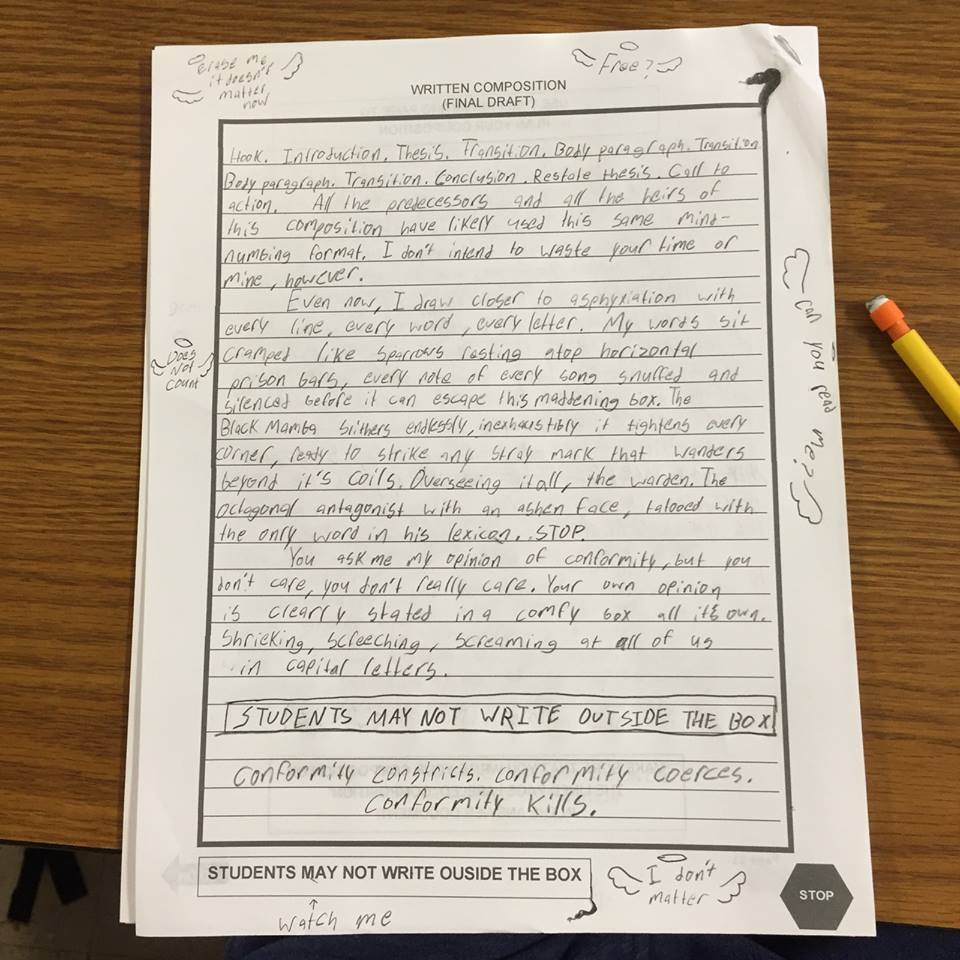 erase me
it doesn't
matter
now
Free?
WRITTEN COMPOSITION
(FINAL DRAFT)
Hook. Introduction. Thesis. Transition. Body paragraph. Transition
Body paragraph. Transition. Conclusion. Restate thesis. Call to
action. All the predecessors and all the heirs of
this composition have likely used this same mind-
numbing format. I don't intend to waste your time or
mine, however.
Even now, I draw closer to asphyxiation with
every line, every word, every letter. My words sit
cramped like sparrows resting atop horizontal
prison bars, every note of every song snuffed and
silenced before it can escape this maddening box. The
Black Mamba slithers endlessly, inexhaustibly it tightens every
corner, ready to strike any stray mark that wanders
beyond it's coils. Overseeing it all, the warden. The
octagonal antagonist with an ashen face, tatooed with
the only word in his lexicon. STOP.
You ask me my opinion of conformity, but you
don't care, you don't really care. Your own opinion
is clearly stated in a comfy box all it's own.
Shrieking, screeching, screaming at all of us
in capital letters.
STUDENTS MAY NOT WRITE OUTSIDE THE BOX
Conformity constricts. conformity coerces.
conformity kills.
Does
Not
count
can you read me?
STUDENTS MAY NOT WRITE OUSIDE THE BOX
watch me
I don't
matter
STOP